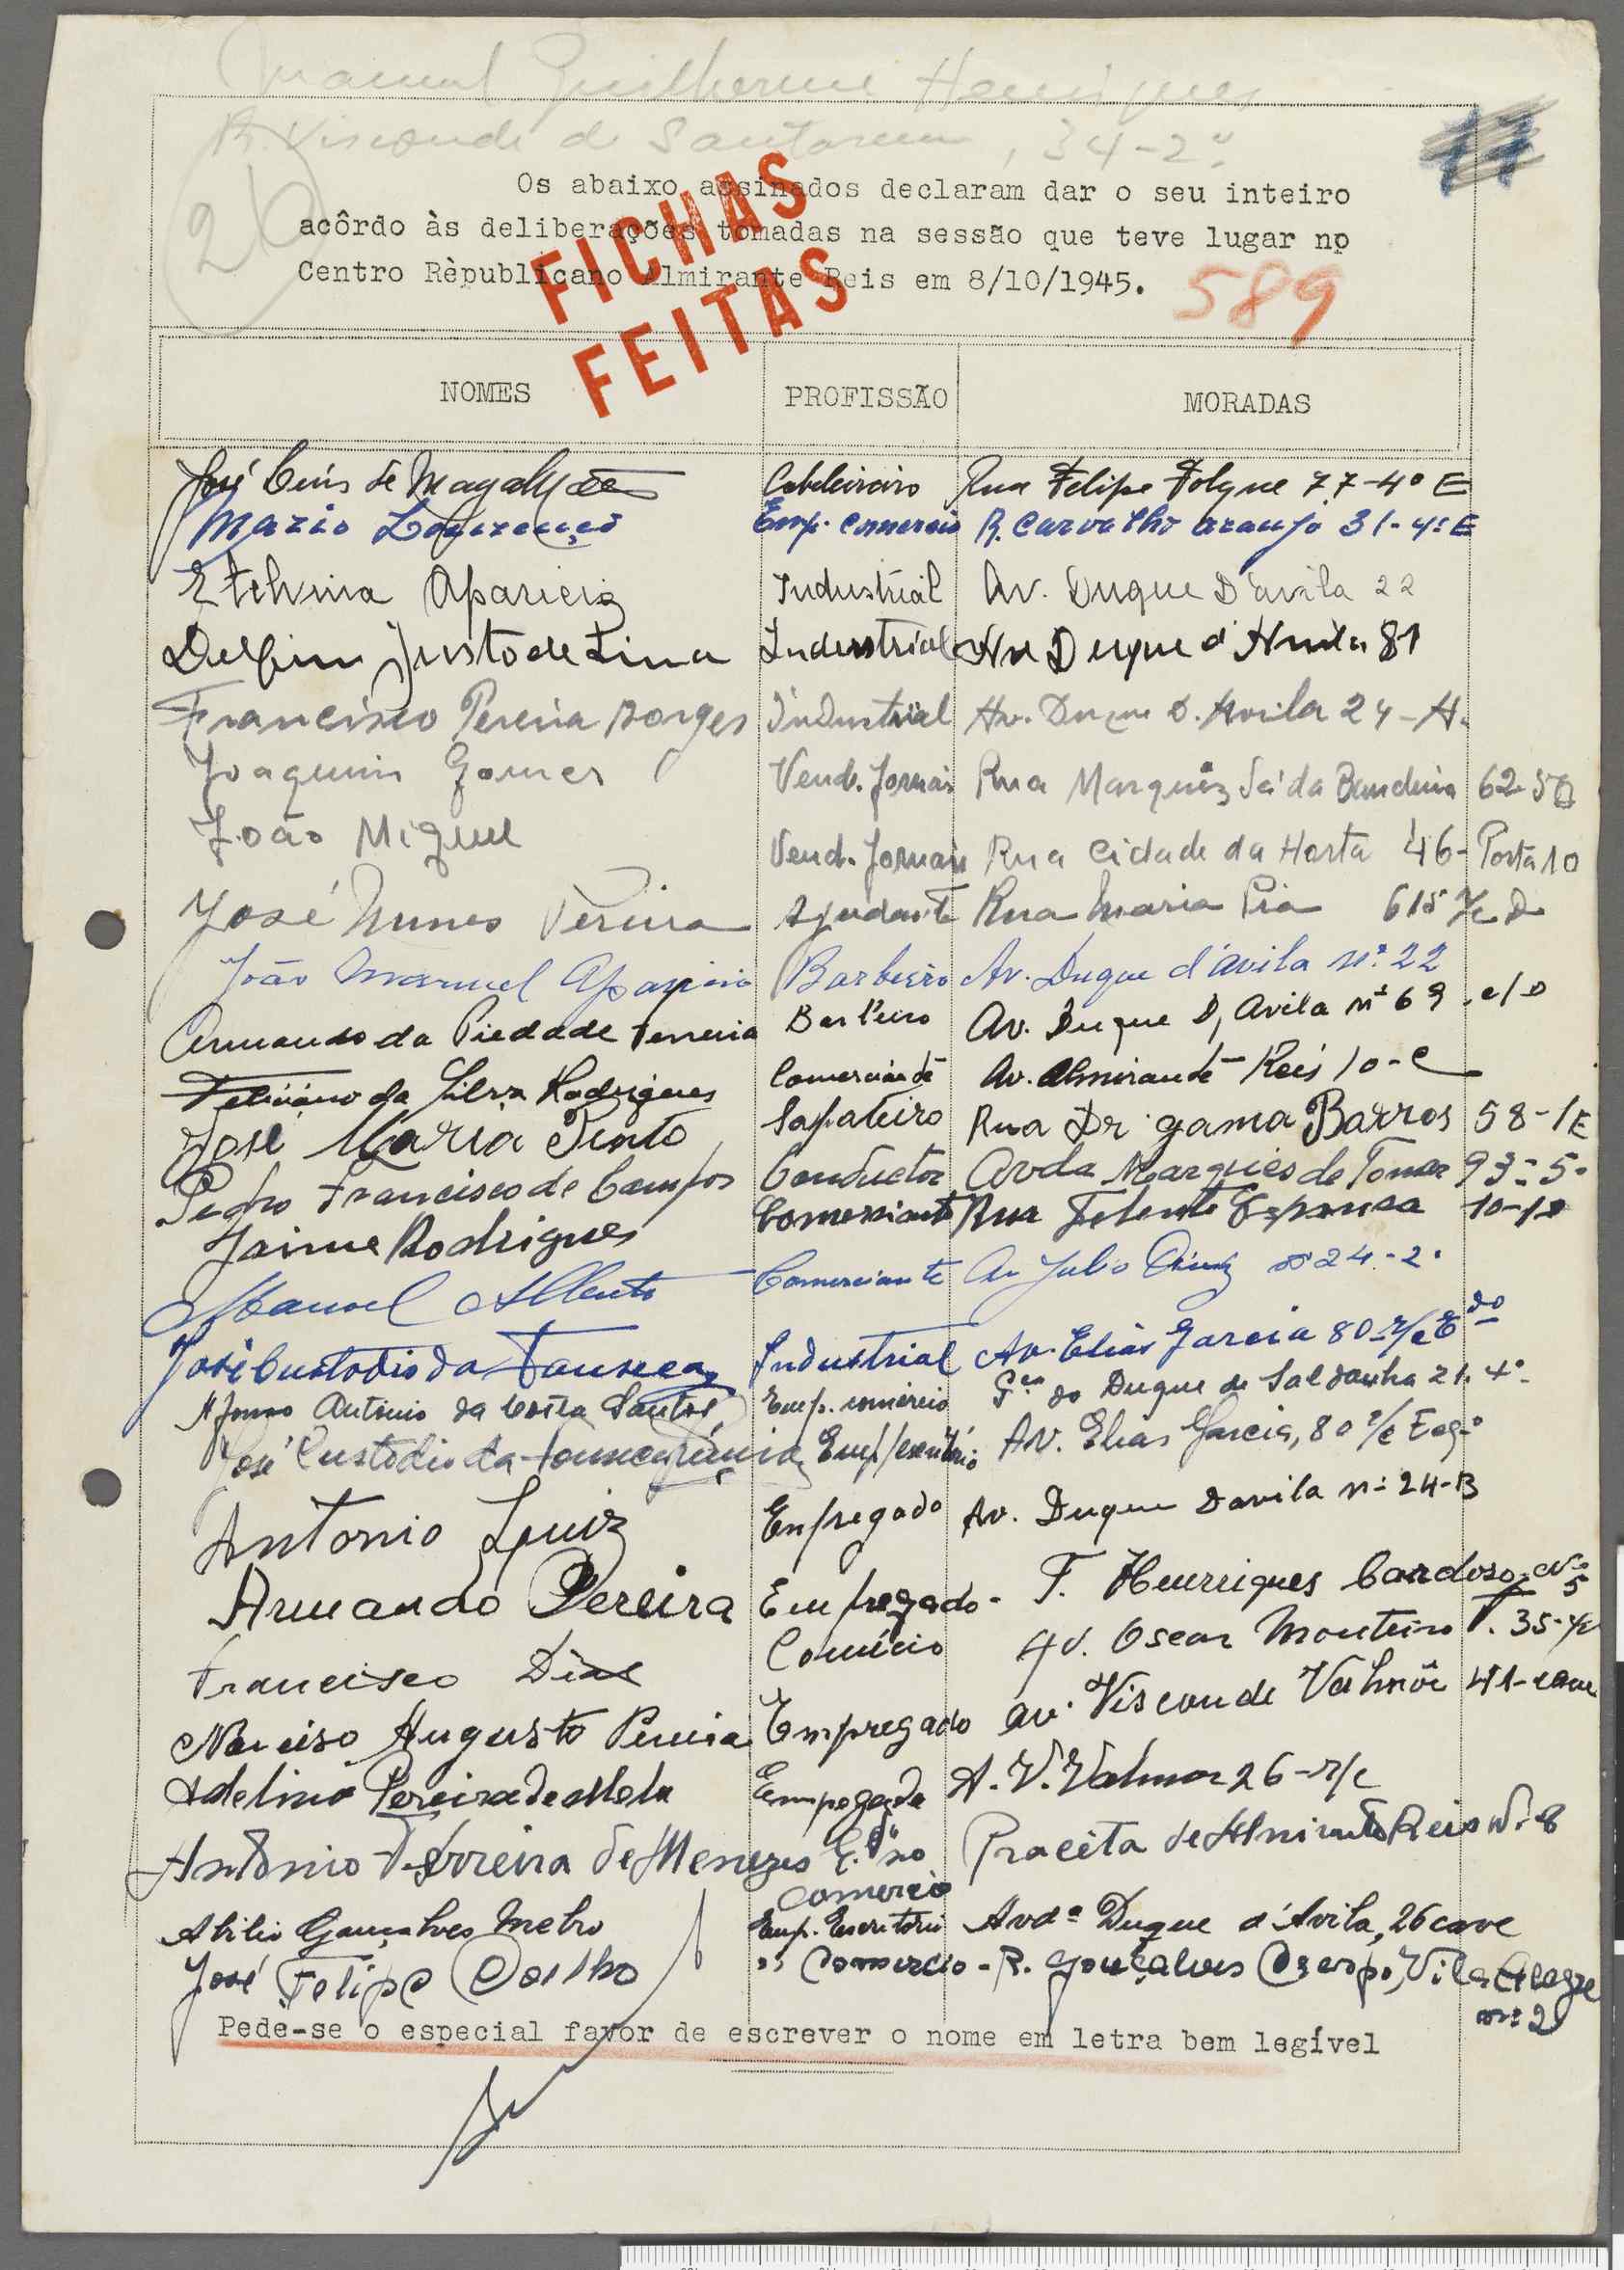 Manuel Guilherme Henriques
R. Visconde de Santarem, 34-2º
77
26
Os abaixo assinados declaram dar o seu inteiro
acôrdo às deliberações tomadas na sessão que teve lugar no
Centro Rèpublicano Almirante Reis em 8/10/1945.
FICHAS
FEITAS
589
NOMES PROFISSÃO MORADAS
José Luis de Magalhães Cabeleireiro Rua Felipe Folque 77-4º E
Mario Lourenço Emp. Comercio R. Carvalho Araujo 31-4º E
Etelvina Aparicio Industrial Av. Duque D'avila 22
Delfim Justo de Lima Industrial Av Duque d'Avila 81
Francisco Pereira Borges Industrial Av. Duque D. Avila 24-A.
Joaquim Gomes Vend. Jornais Rua Marquêz Sá da Bandeira 62-5º
João Miguel Vend. Jornais Rua Cidade da Horta 46-Porta 10
José Nunes Pereira Ajudante Rua Maria Pia 615 r/c D
João Manuel Aparicio Barbeiro Av. Duque d'avila nº 22
Armando da Piedade Ferreira Barbeiro Av. Duque D, Avila nº 69 c/D
Feliciano da Silva Rodrigues Comerciante Av. Almirante Reis 10-C
José Maria Pinto Sapateiro Rua Dr gama Barros 58-1E
Pedro Francisco de Campos Conductor Avda Marques de Tomar 93-5º
Jaime Rodrigues Comerciante Rua 10-1º
Manuel Alberto Comerciante Av Julio Diniz nº 24-2º
José Custodio da Fonseca Industrial Av. Elias Garcia 80-r/c Edo
Afonso Antonio da Costa Santos Emp. comércio Pça do Duque de Saldanha 21, 4º
José Custodio da Fonseca Júnior Emp/escritório AV. Elias Garcia, 80 r/c Esqº
Antonio Luiz Empregado Av. Duque Davila nº 24-B
Armando Pereira Empregado- T. Henriques Cardoso, Nº 5
Francisco Dias Comércio Av. Oscar Monteiro T. 35-r/c
Narciso Augusto Pereira Empregado Av. Visconde Valmôr 41-cave
Adelino Pereira de Melo Empegado A. V. Valmor 26-r/c
António Ferreira de Menezes E. do no comercio Praceta de Almirante Reis Nº 8
Abilio Gonçalves Melro Emp. Escritório Avdª Duque d'Avila, 26 cave
José Felipe Coelho " Comercio - R. Gonçalves Crespo, Vila Alegre nº 2
Pede-se o especial favor de escrever o nome em letra bem legível